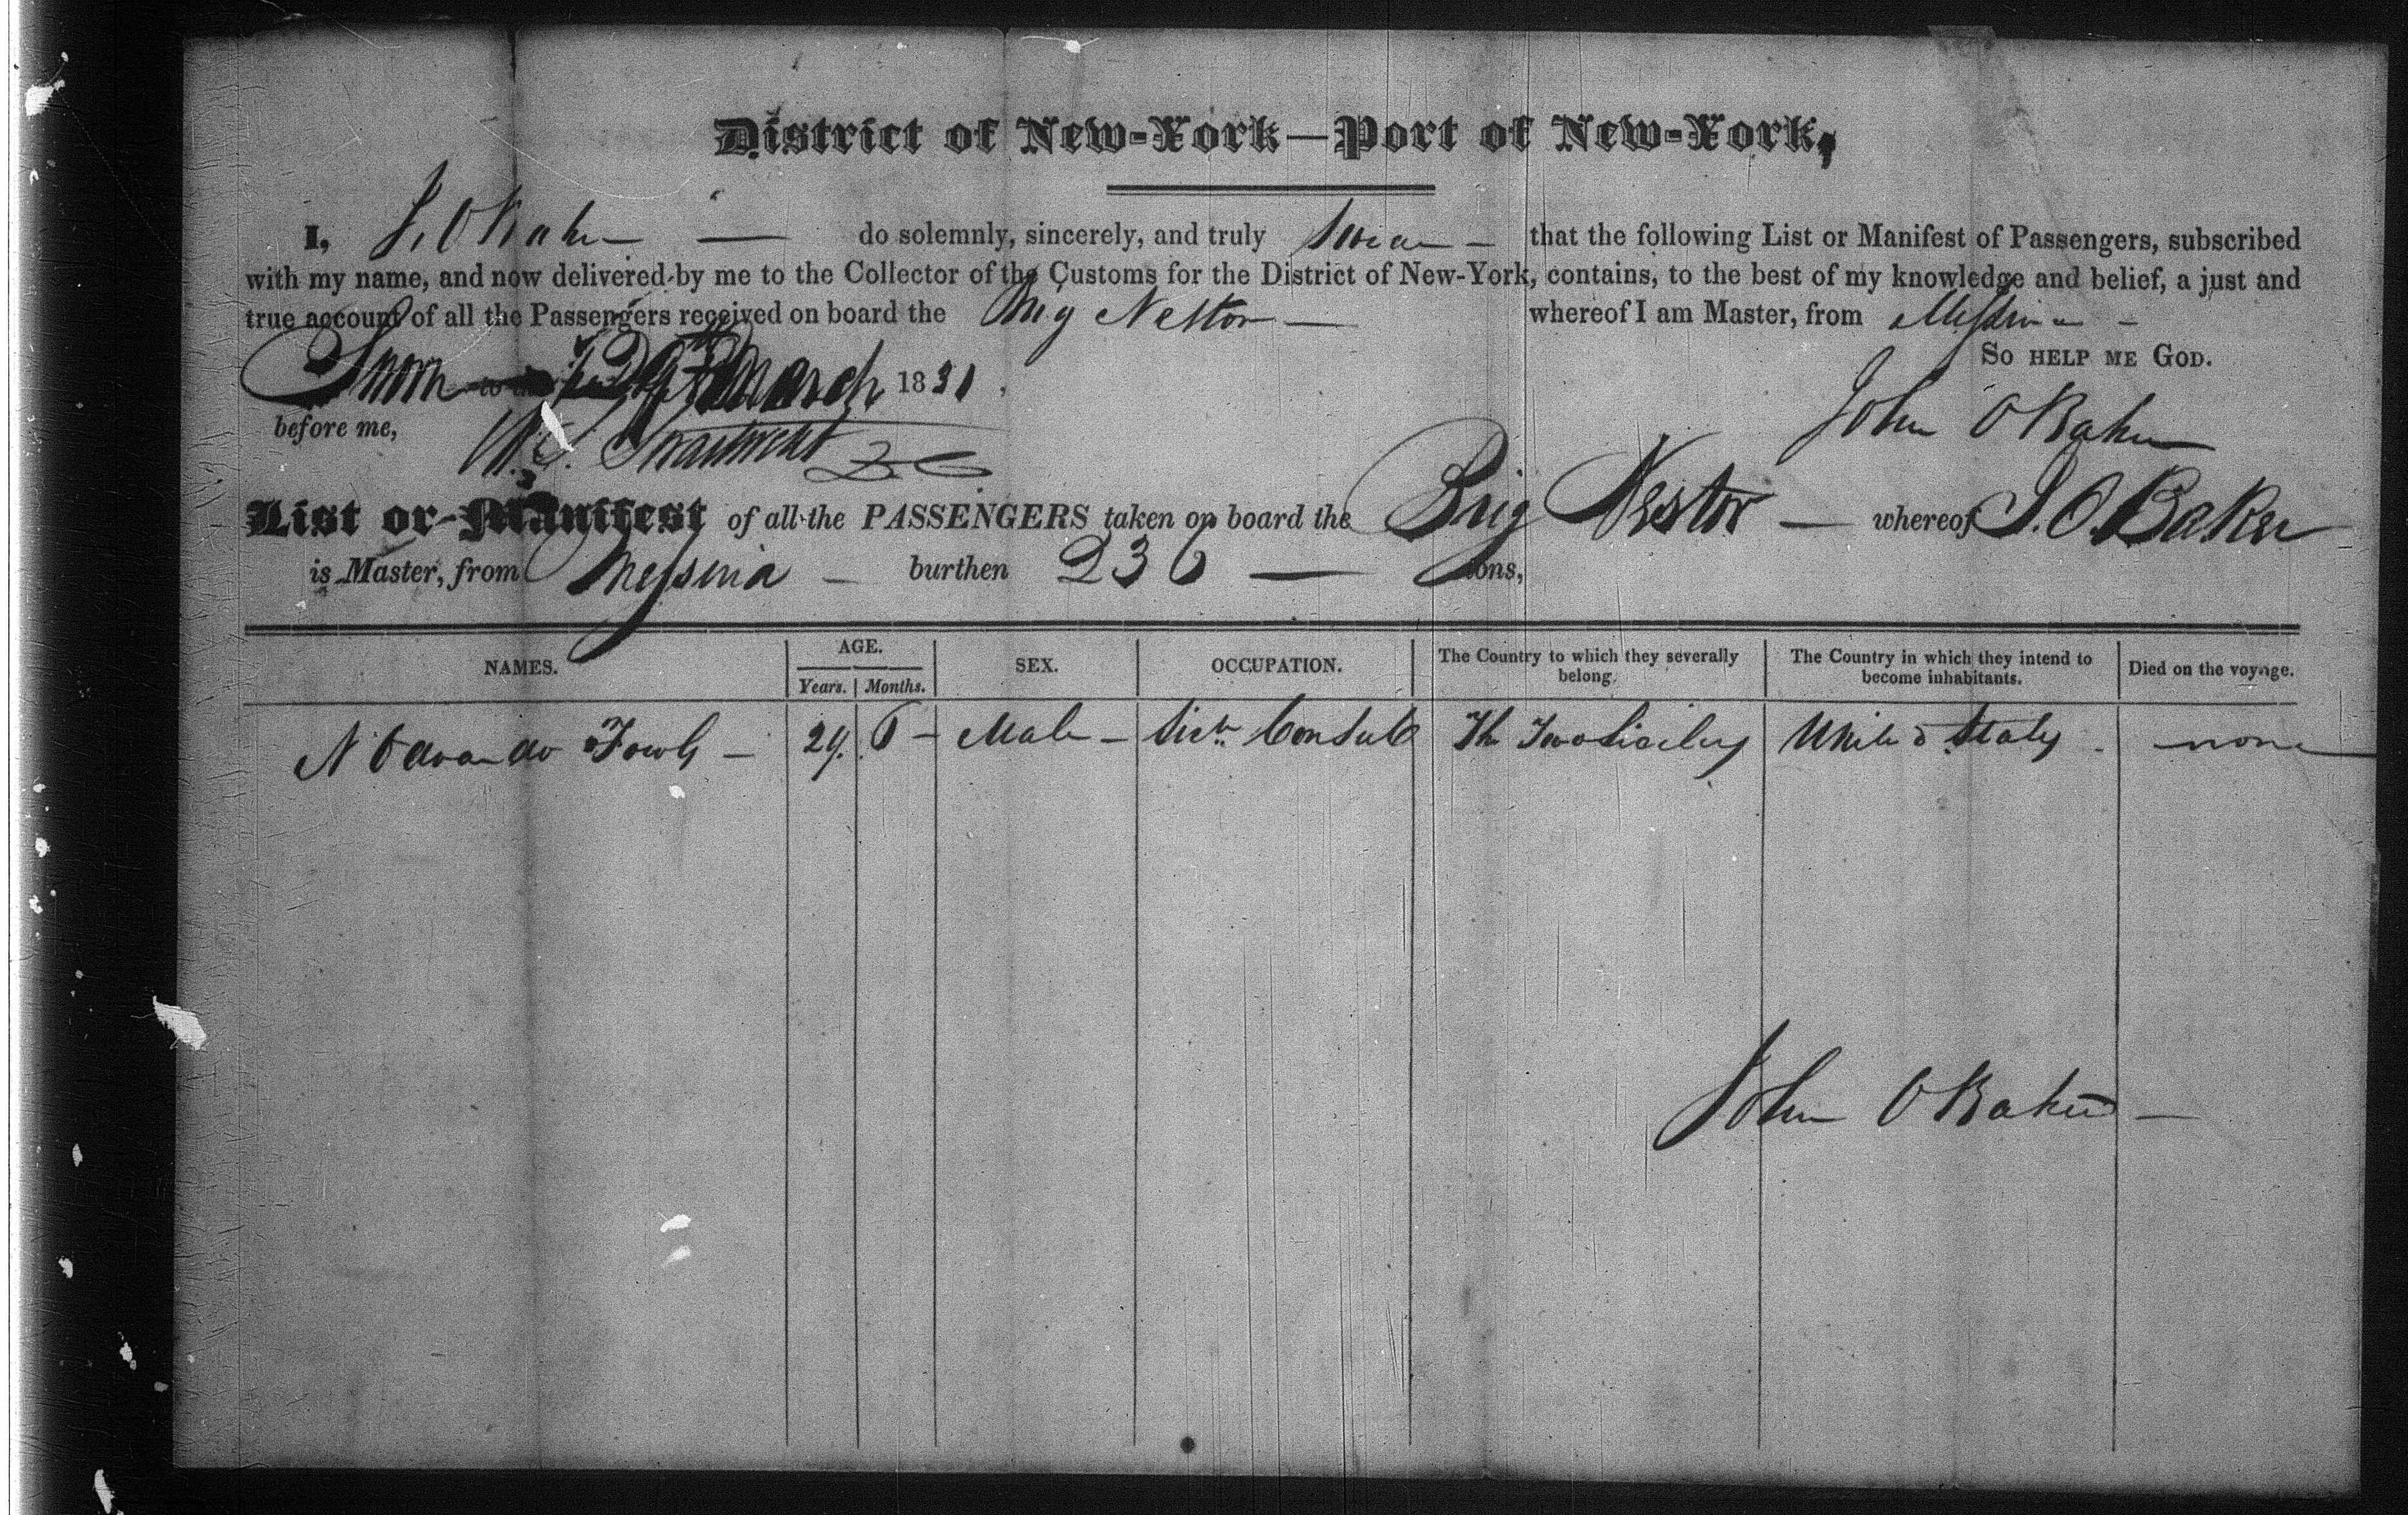 District of New-York—Port of New-York,
I, J. O Baker — do solemnly, sincerely, and truly swear — that the following List or Manifest of Passengers, subscribed
with my name, and now delivered by me to the Collector of the Customs for the District of New-York, contains, to the best of my knowledge and belief, a just and
true account of all the Passengers received on board the Brig Nestor — whereof I am Master, from Messina —
So help me God.
Sworn to March 1831,
John O Baker
before me,
List or Manifest of all the PASSENGERS taken on board the Brig Nestor — whereof J. O. Baker
is Master, from Messina — burthen 236 — tons,
NAMES. AGE. Years. Months. SEX. OCCUPATION. The Country to which they severally belong. The Country in which they intend to become inhabitants. Died on the voyage.
29. 6 — Male — Consul The Two Sicilys United States — none
John O Baker —